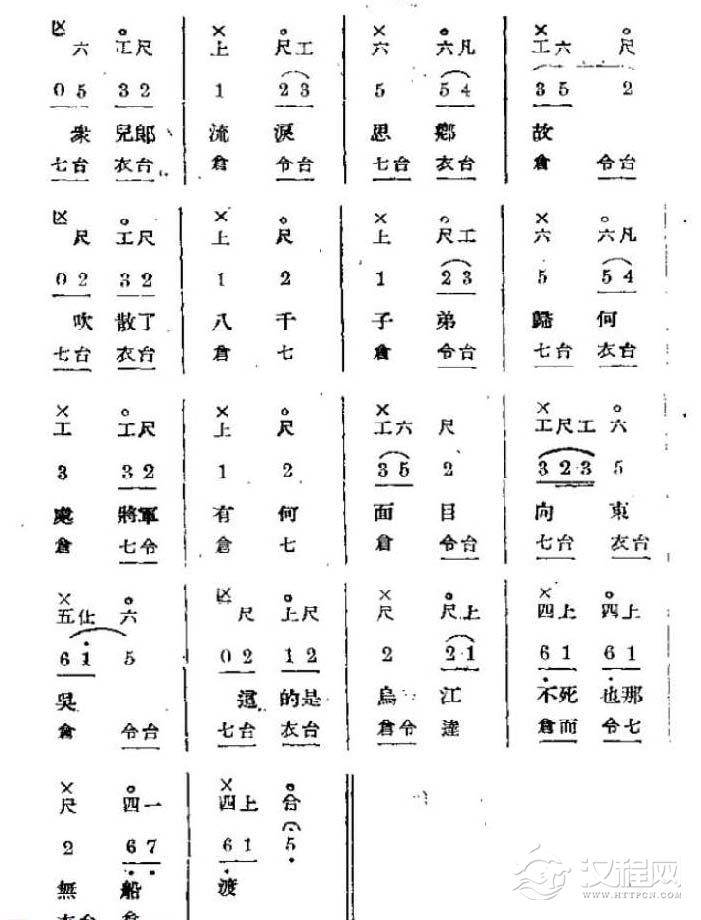 六 工尺 上 尺工 六 六凡 工六 尺
0 5 3 2 1 2 3 5 5 4 3 5 2
衆 兒郎 流 淚 思 鄉 故
七台 衣台 倉 令台 七台 衣台 倉 令台
尺 工尺 上 尺 上 尺工 六 六凡
0 2 3 2 1 2 1 2 3 5 5 4
吹 散了 八 千 子 弟 歸 何
七台 衣台 倉 七 倉 令台 七台 衣台
工 工尺 上 尺 工六 尺 工尺工 六
3 3 2 1 2 3 5 2 3 2 3 5
處 將軍 有 何 面 目 向 東
倉 七令 倉 七 倉 令台 七台 衣台
五仩 六 尺 上尺 尺 尺上 四上 四上
6 1 5 0 2 1 2 2 2 1 6 1 6 1
吳 這 的是 烏 江 不死 也那
倉 令台 七台 衣台 倉令 達 倉而 令七
尺 四一 四上 合
2 6 7 6 1 5
無 船 渡
衣台 倉
汉程网
HTTPCN.COM